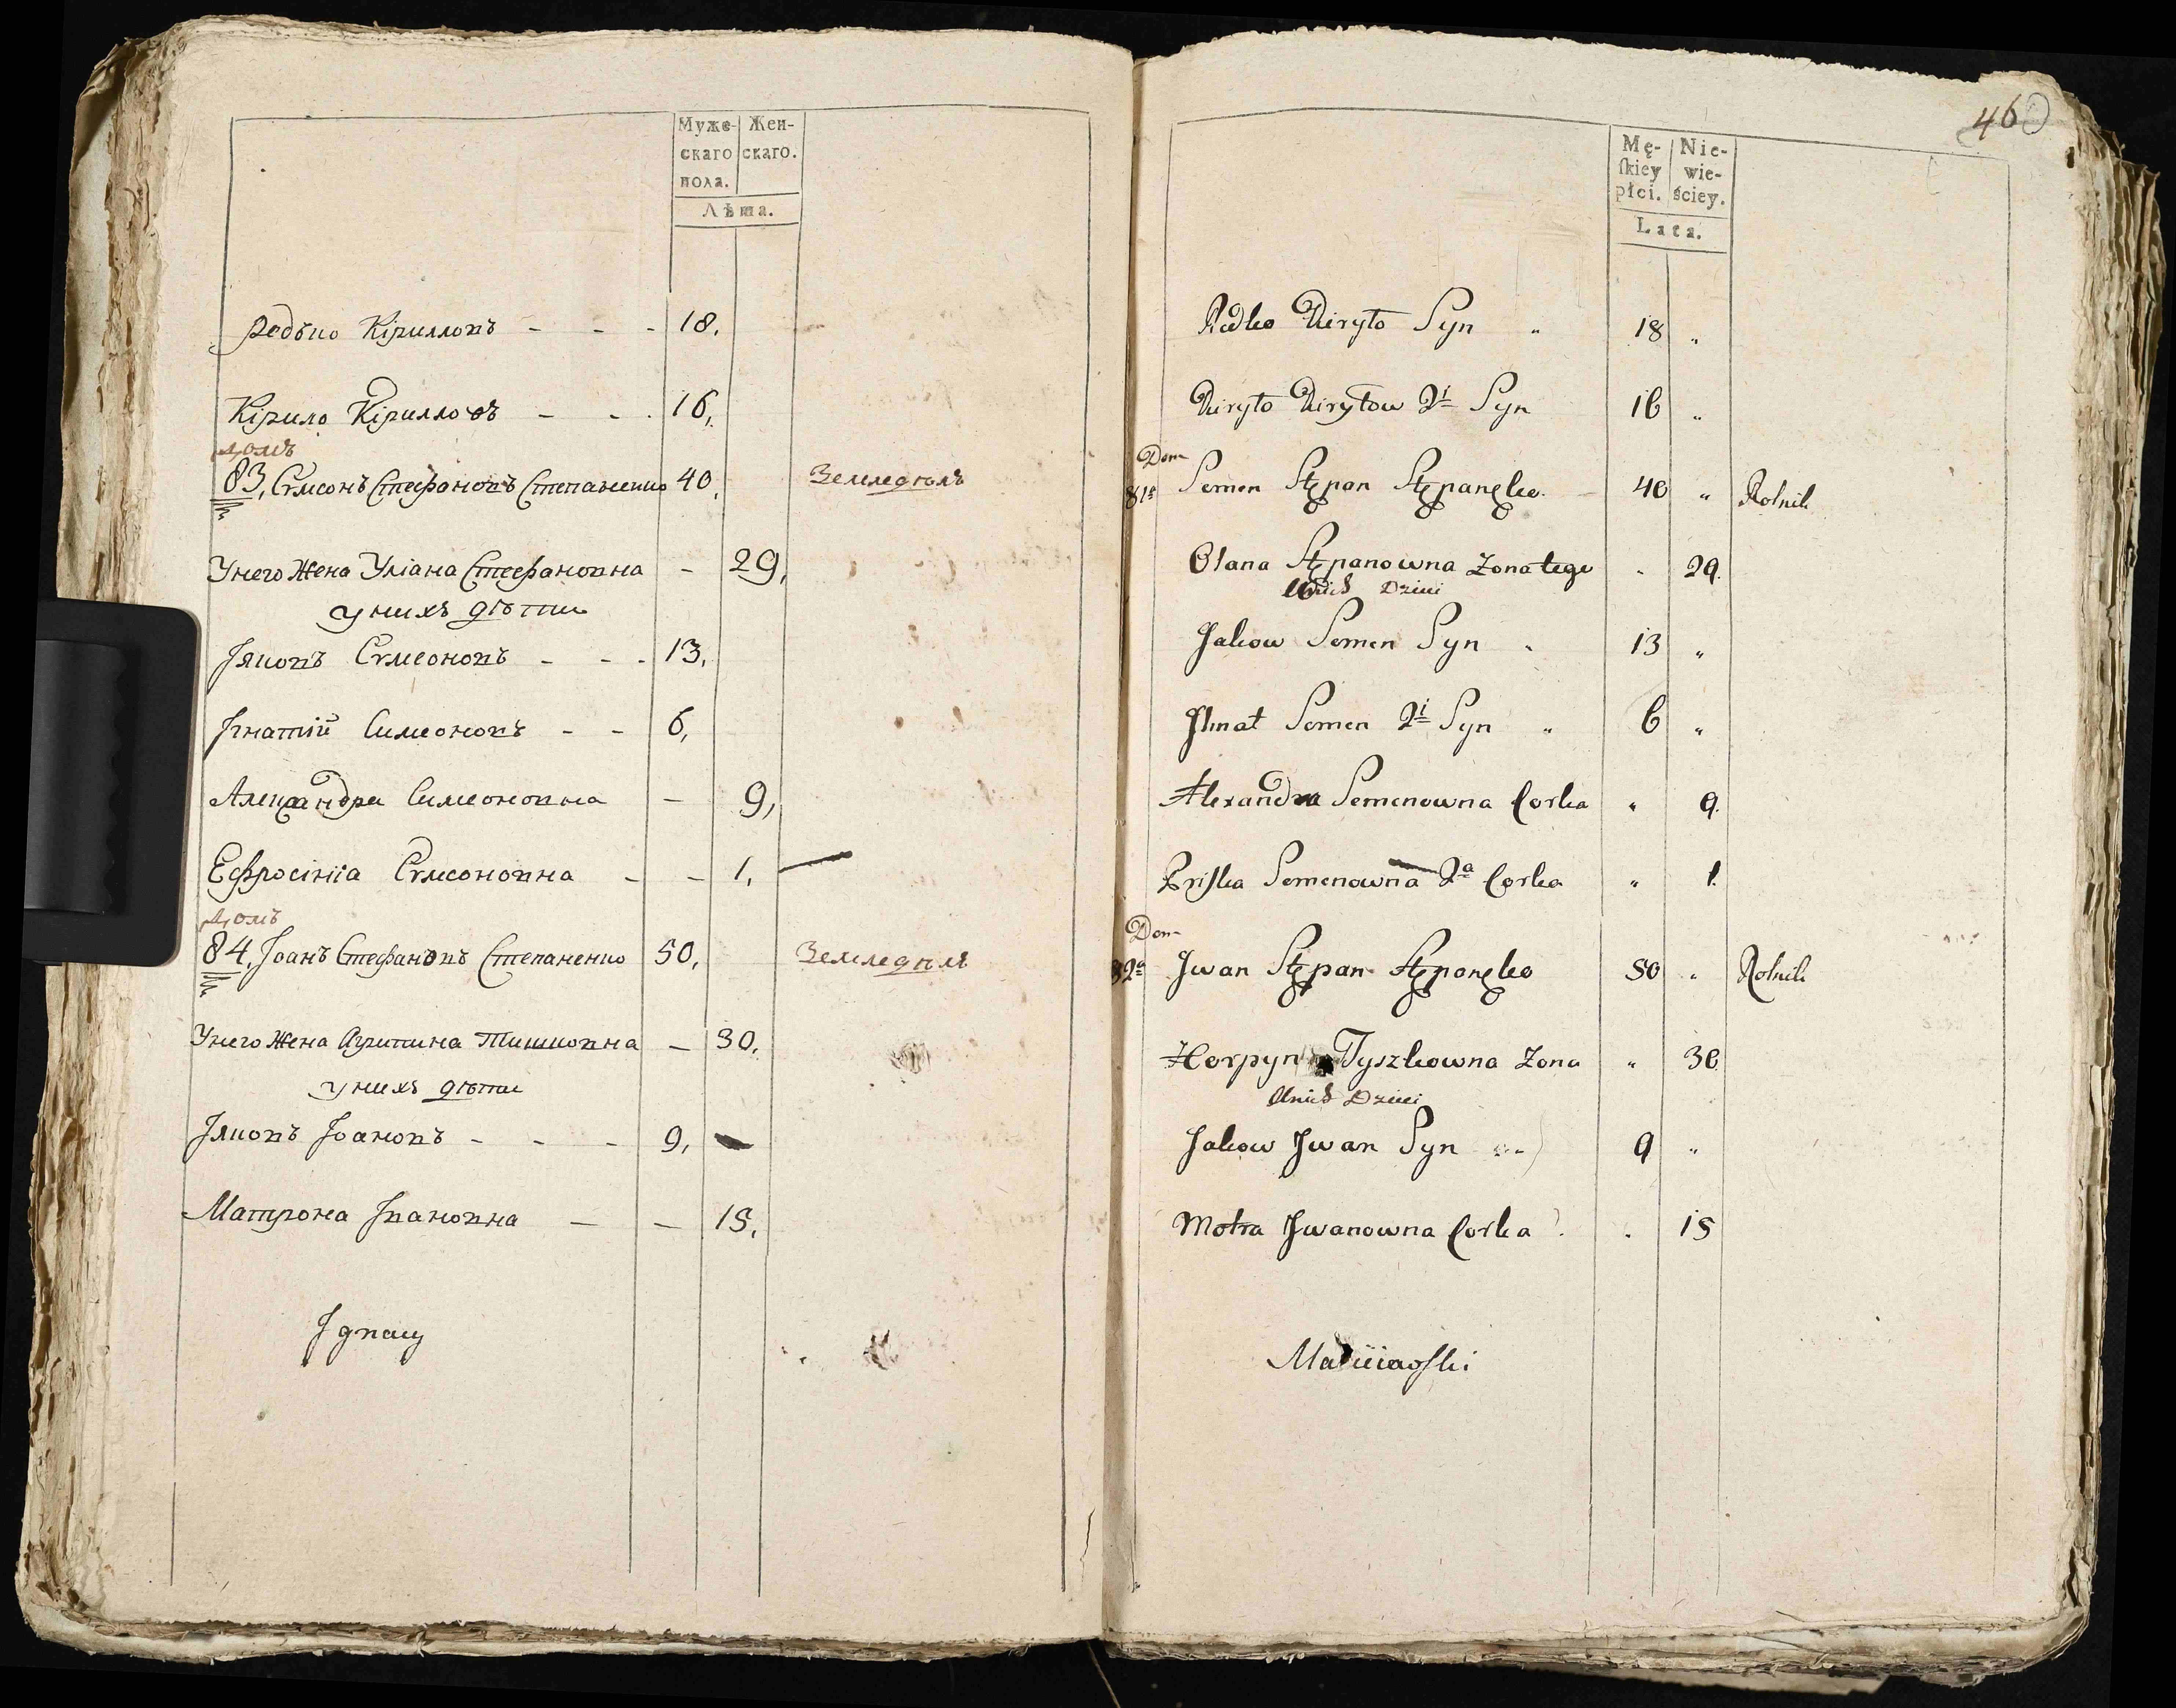 Муже- Жен-
скаго скаго.
пола.
Лѣта.
Редько Кириловъ - - - 18.
Кірило Кірилловъ - - . 16,
домъ
83, Сѵмеонъ Стефановъ Степаненко 40, Земледѣлъ
Унего Жена Уліана Стефановна - 29,
у нихъ дѣти
Іяковъ Сѵмеоновъ - - - 13,
Ігнатій Симеоновъ - - 6,
Александра Симеоновна - 9,
Ефросініа Сѵмеоновна - - 1,
домъ
84, Іоанъ Стефановъ Степаненко 50, Земледѣлъ
Унего Жена Агрипина Тишковна - 30,
у нихъ дѣти
Іяковъ Іоановъ - - - 9,
Матрона Івановна - - 15,
Ignacy
460
Mę- Nie-
ſkiey wie-
płci. ściey.
Lata.
Redko Kiryło Syn " 18 "
Kiryło Kiryłow 2i Syn 16 "
Dom
81a Semen Stępan Stępanęko. 40 " Rolnik
Olana Stępanowna Żona tego . 29.
Unich Dzieci
Jakow Semen Syn . 13 "
Ihnat Semen 2i Syn " 6 "
Alexandra Semenowna Corka " 9.
Priſka Semenowna 2a Corka " 1.
Dom
82a Jwan Stępan Stępanęko 50 " Rolnik
Horpyna Tyszkowna Żona " 30
Unich Dzieci
Jakow Jwan Syn 9 "
Motra Jwanowna Corka . . 15